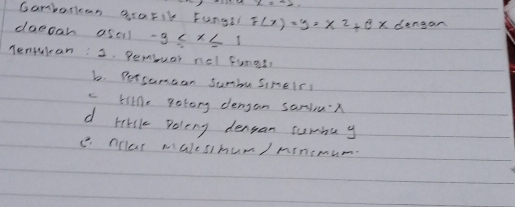 Gambarkan grafik Fungsi F(x) = y = x2 + 8x dengan
daerah asal -9 ≤ x ≤ 1
Tentukan : a. Pembuat nol Fungsi
b. Persamaan Sumbu Simetri
c titik Potong dengan sumbu x
d titik Potong dengan sumbu y
e. nilai maksimum / minimum.